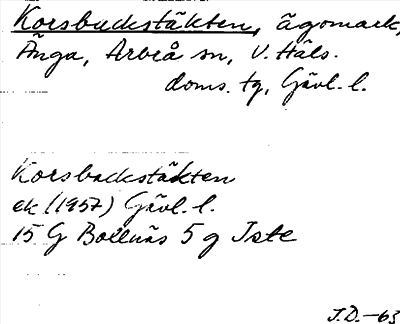 Korsbackstäkten, ägomark,
Änga, Arbrå sn, V. Häls.
doms. tg, Gävl. l.
Korsbackstäkten
ek (1957) Gävl. l.
15 G Bollnäs 5 g Iste
J.D.-63